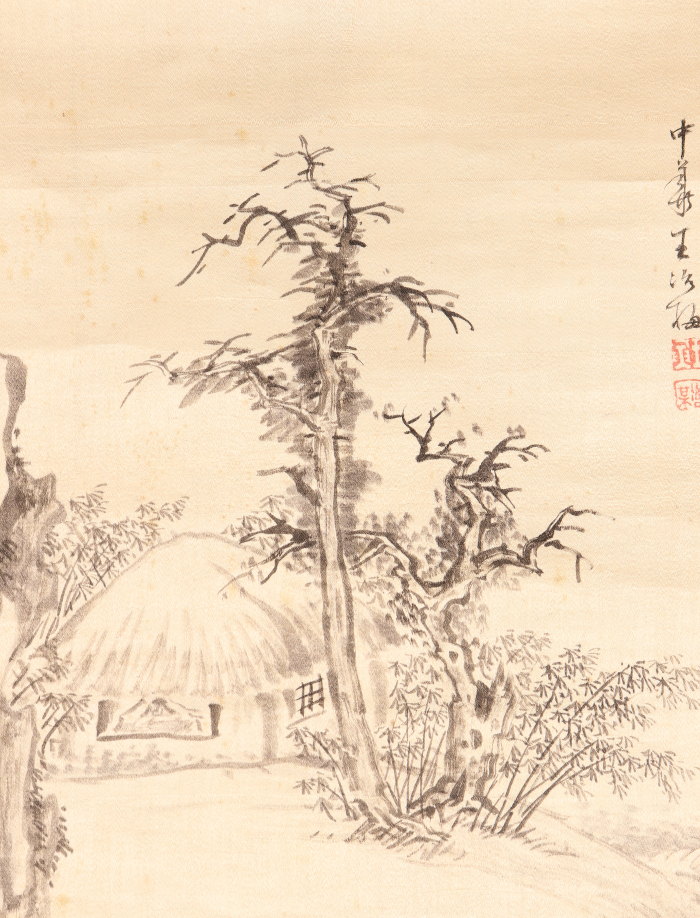 中華王冶梅